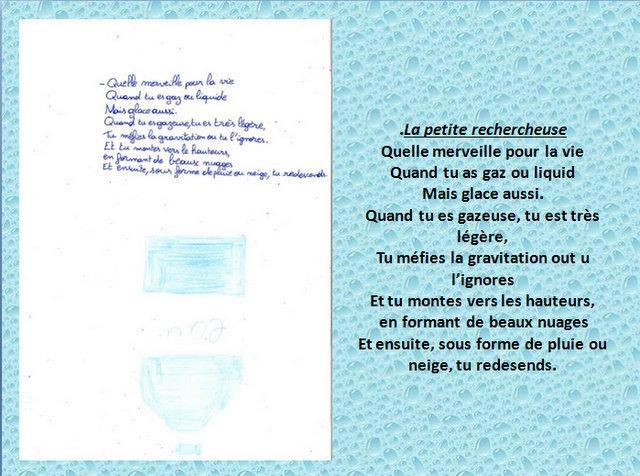 - Quelle merveille pour la vie
Quand tu es gaz ou liquide
Mais glace aussi.
Quand tu es gazeuse, tu es très légère,
Tu méfies la gravitation ou tu l'ignores.
Et tu montes vers le hauteurs,
en formant de beaux nuages
Et ensuite, sous forme de pluie ou neige, tu redescends
.La petite rechercheuse
Quelle merveille pour la vie
Quand tu as gaz ou liquid
Mais glace aussi.
Quand tu es gazeuse, tu est très
légère,
Tu méfies la gravitation out u
l'ignores
Et tu montes vers les hauteurs,
en formant de beaux nuages
Et ensuite, sous forme de pluie ou
neige, tu redesends.